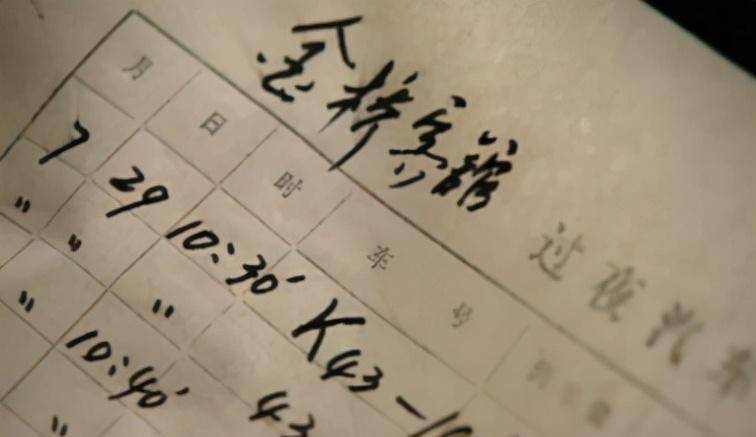 金桥宾馆 过夜汽车
月 日 时 车号
7 29 10:30' K43-1
" " "
" 10:40' 43
"